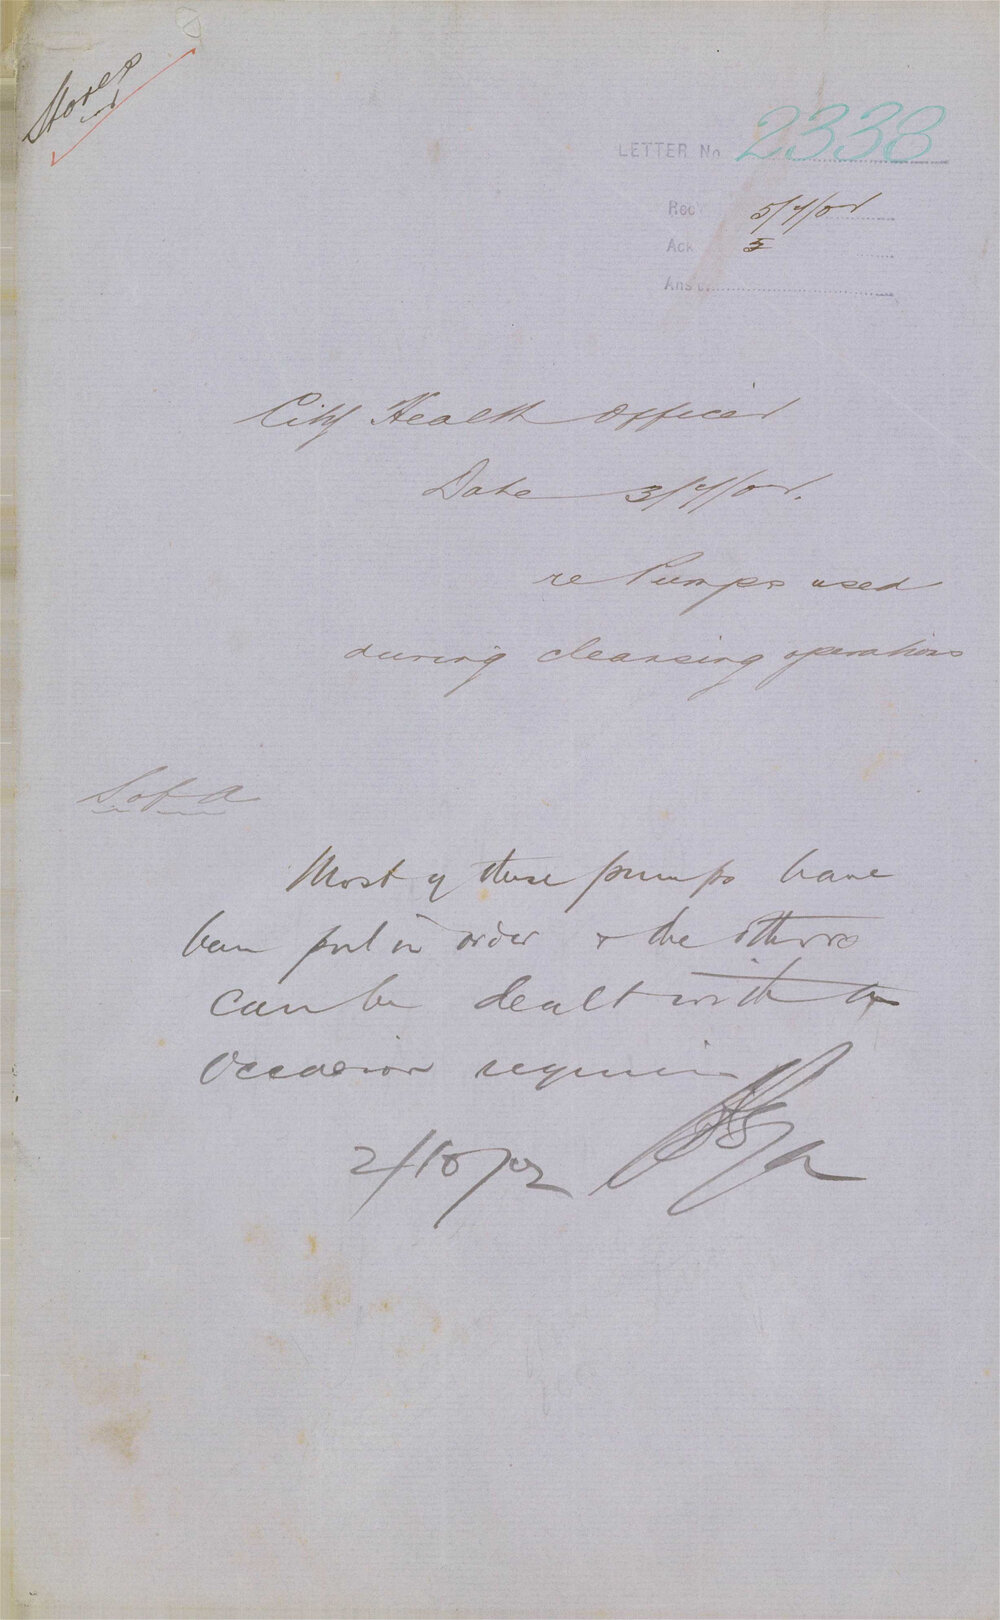 Stores
LETTER No 2338
Rec 5/7/02
Ack 5
Ans d
City Health Officer
Date 3/7/02.
re Pumps used
during cleansing operations
Most of these pumps have
been put in order & the others
can be dealt with as
occasion requires
2/10/02